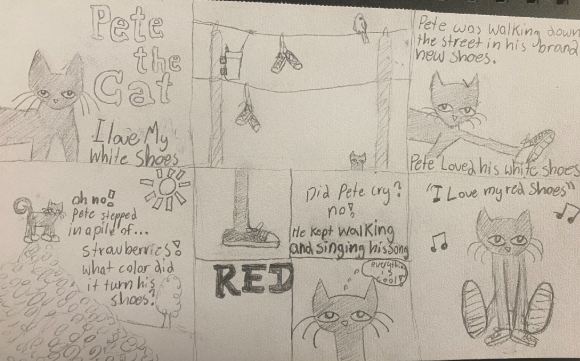 Pete
the
Cat
I love My
White Shoes
Pete was walking down
the street in his brand
new shoes.
Pete Loved his white shoes
oh no!
Pete stepped
in a pile of...
Strawberries!
what color did
it turn his
shoes?
RED
Did Pete cry?
no!
He kept walking
and singing his song
everything
is
cool!
"I Love my red shoes"